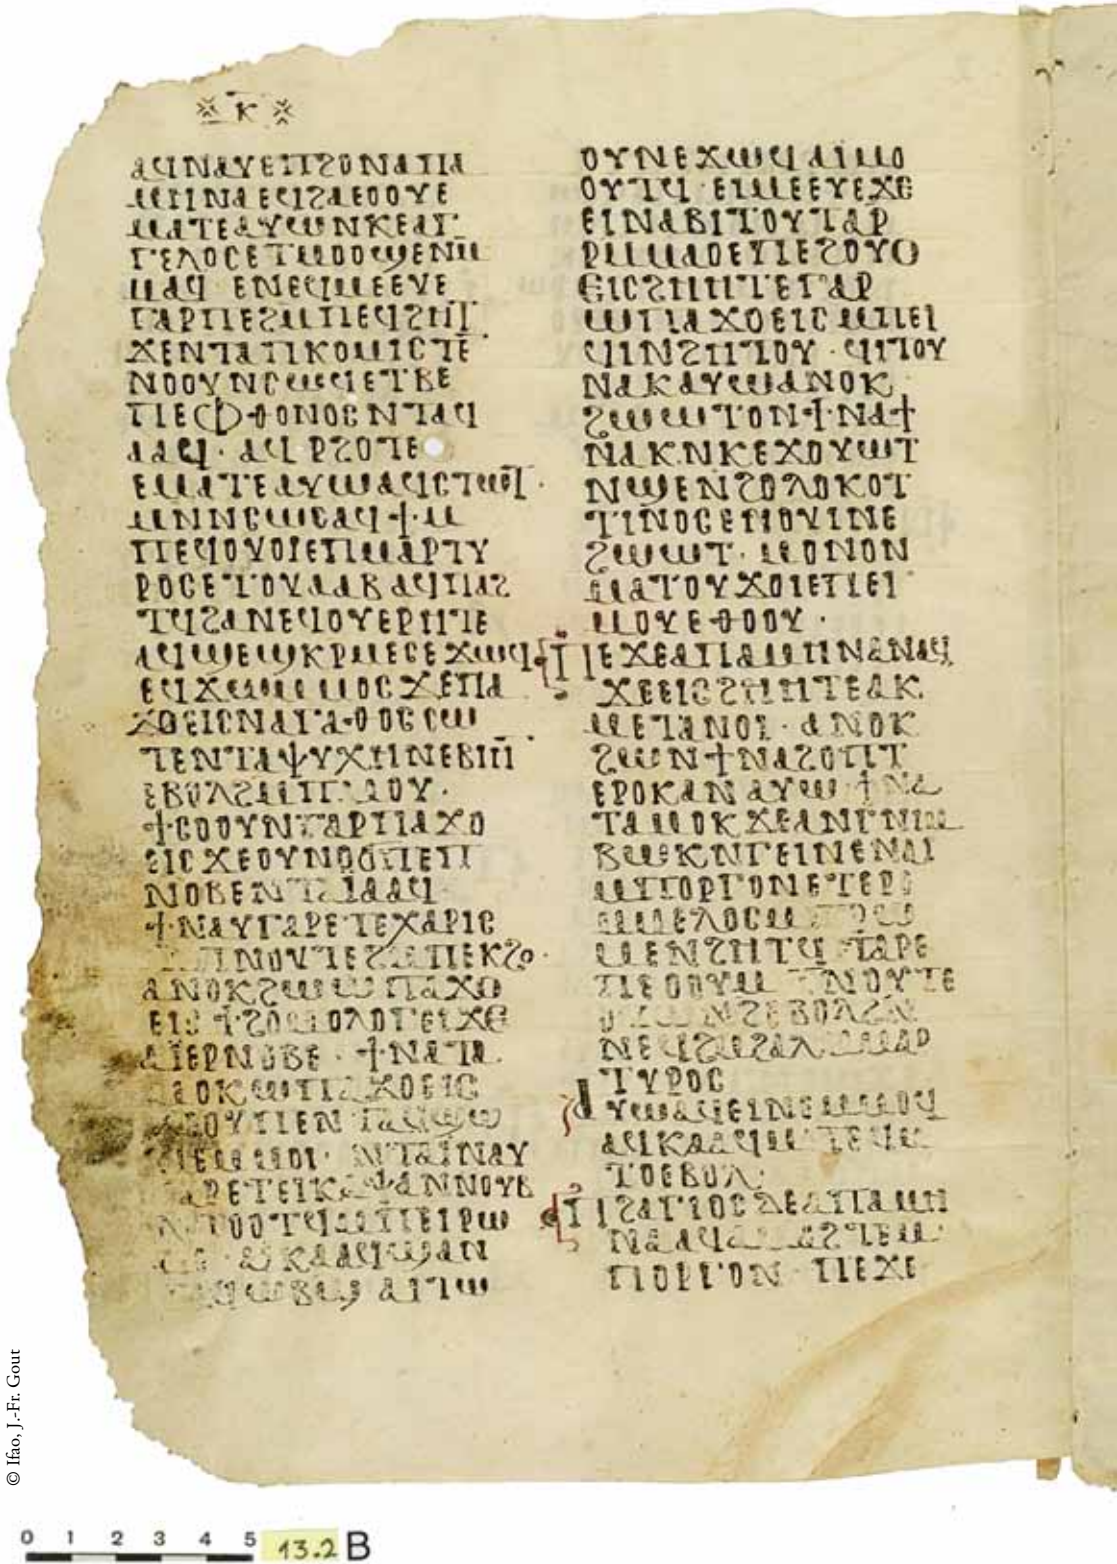 ⲕ
ⲁϥⲛⲁⲩⲉⲡϩⲟⲛⲁⲡⲁ
ⲙⲏⲛⲁⲉϥϩⲁⲉⲟⲟⲩⲉ
ⲙⲁⲧⲉⲁⲩⲱⲛⲕⲉⲁⲅ
ⲅⲉⲗⲟⲥⲉⲧⲙⲟⲟϣⲉⲛⲙ
ⲙⲁϥ ⲉⲛⲉϥⲙⲉⲉⲩⲉ
ⲅⲁⲣⲡⲉϩⲙⲡⲉϥϩⲏⲧ
ϫⲉⲛⲧⲁⲡⲕⲟⲙⲓⲥⲧⲉ
ⲛⲟⲟⲩⲛⲥⲱϥⲉⲧⲃⲉ
ⲡⲉⲫⲑⲟⲛⲟⲥⲛⲧⲁϥ
ⲁⲁϥ· ⲁϥⲣϩⲟⲧⲉ
ⲉⲙⲁⲧⲉⲁⲩⲱⲁϥⲥⲧⲱⲧ·
ⲙⲛⲛⲥⲱⲥⲁϥϯ·ⲙ
ⲡⲉϥⲟⲩⲟⲓⲉⲡⲙⲁⲣⲧⲩ
ⲣⲟⲥⲉⲧⲟⲩⲁⲁⲃⲁϥⲡⲁϩ
ⲧϥϩⲁⲛⲉϥⲟⲩⲉⲣⲏⲧⲉ
ⲁϥϣⲉϣⲕⲣⲙⲉⲥⲉϫⲱϥ
ⲉϥϫⲱⲙⲙⲟⲥϫⲉⲡⲁ
ϫⲟⲉⲓⲥⲛⲁⲅⲁⲑⲟⲥⲥⲱ
ⲧⲉⲛⲧⲁⲯⲩⲭⲏⲛⲉⲃⲓⲏⲛ
ⲉⲃⲟⲗϩⲙⲡⲙⲟⲩ·
ϯⲥⲟⲟⲩⲛⲅⲁⲣⲡⲁϫⲟ
ⲉⲓⲥϫⲉⲟⲩⲛⲟϭⲡⲉⲡ
ⲛⲟⲃⲉⲛⲧⲁⲓⲁⲁϥ
ϯⲛⲁⲩⲅⲁⲣⲉⲧⲉⲭⲁⲣⲓⲥ
ⲙⲡⲛⲟⲩⲧⲉϩⲙⲡⲉⲕϩⲟ·
ⲁⲛⲟⲕϩⲱⲱ ⲡⲁϫⲟ
ⲉⲓⲥϯϩⲟⲙⲟⲗⲟⲅⲉⲓϫⲉ
ⲁⲓⲉⲣⲛⲟⲃⲉ· ϯⲛⲁⲧⲁ
ⲙⲟⲕⲱⲡⲁϫⲟⲉⲓⲥ
ⲉⲟⲩⲡⲉⲛⲧⲁϥϣⲱ
ⲡⲉⲙⲙⲟⲓ· ⲛⲧⲁⲓⲛⲁⲩ
ⲅⲁⲣⲉⲧⲉⲓⲕⲁⲯⲁⲛⲛⲟⲩⲃ
ⲛⲧⲟⲟⲧϥⲙⲡⲉⲓⲣⲱ
ⲙⲉ· ⲁⲓⲕⲁⲁϥϣⲁⲛ
ⲧϥⲱⲃϣ ⲁⲓⲧⲱ
ⲟⲩⲛⲉϫⲱϥⲁⲓⲙⲟ
ⲟⲩⲧϥ·ⲉⲓⲙⲉⲉⲩⲉϫⲉ
ⲉⲓⲛⲁϥⲓⲧⲟⲩⲧⲁⲣ
ⲣⲙⲙⲁⲟⲉⲡⲉϩⲟⲩⲟ
ⲉⲓⲥϩⲏⲏⲧⲉⲅⲁⲣ
ⲱⲡⲁϫⲟⲉⲓⲥⲙⲡⲉⲓ
ϥⲓⲛϩⲏⲧⲟⲩ·ϥⲓⲧⲟⲩ
ⲛⲁⲕⲁⲩⲱⲁⲛⲟⲕ
ϩⲱⲱⲧⲟⲛϯⲛⲁϯ
ⲛⲁⲕⲛⲕⲉϫⲟⲩⲱⲧ
ⲛϣⲉⲛϩⲟⲗⲟⲕⲟⲧ
ⲧⲓⲛⲟⲥⲉⲛⲟⲩⲓⲛⲉ
ϩⲱⲱⲧ· ⲙⲟⲛⲟⲛ
ⲙⲁⲧⲟⲩϫⲟⲓⲉⲡⲉⲓ
ⲙⲟⲩⲉⲑⲟⲟⲩ·
ⲡⲉϫⲉⲁⲡⲁⲙⲏⲛⲁⲛⲁϥ
ϫⲉⲉⲓⲥϩⲏⲏⲧⲉⲁⲕ
ⲙⲉⲧⲁⲛⲟⲓ· ⲁⲛⲟⲕ
ϩⲱⲱⲛϯⲛⲁϩⲟⲡⲧ
ⲉⲣⲟⲕⲁⲛ ⲁⲩⲱ ϯⲛⲁ
ⲧⲁⲙⲟⲕϫⲉⲁⲛⲅⲛⲓⲙ
ⲃⲱⲕⲛⲅⲉⲓⲛⲉⲛⲁⲓ
ⲙⲡⲟⲣⲅⲟⲛⲉⲧⲉⲣⲉ
ⲙⲙⲉⲗⲟⲥⲙⲡⲣⲱ
ⲙⲉⲛϩⲏⲧϥ ⲧⲁⲣⲉ
ⲡⲉⲟⲟⲩⲙⲡⲛⲟⲩⲧⲉ
ⲟⲩⲱⲛϩⲉⲃⲟⲗϩⲛ
ⲛⲉϥϩⲙϩⲁⲗⲙⲙⲁⲣ
ⲧⲩⲣⲟⲥ
ⲁⲩⲱⲁϥⲉⲓⲛⲉⲙⲙⲟϥ
ⲁϥⲕⲁⲁϥⲙⲡⲉϥⲙ
ⲧⲟⲉⲃⲟⲗ·
ⲡϩⲁⲅⲓⲟⲥⲇⲉⲁⲡⲁⲙⲏ
ⲛⲁⲁϥⲁⲙⲁϩⲧⲉⲙ
ⲡⲟⲣⲅⲟⲛ· ⲡⲉϫⲉ
© Ifao, J.-Fr. Gout
0 1 2 3 4 5 13.2 B